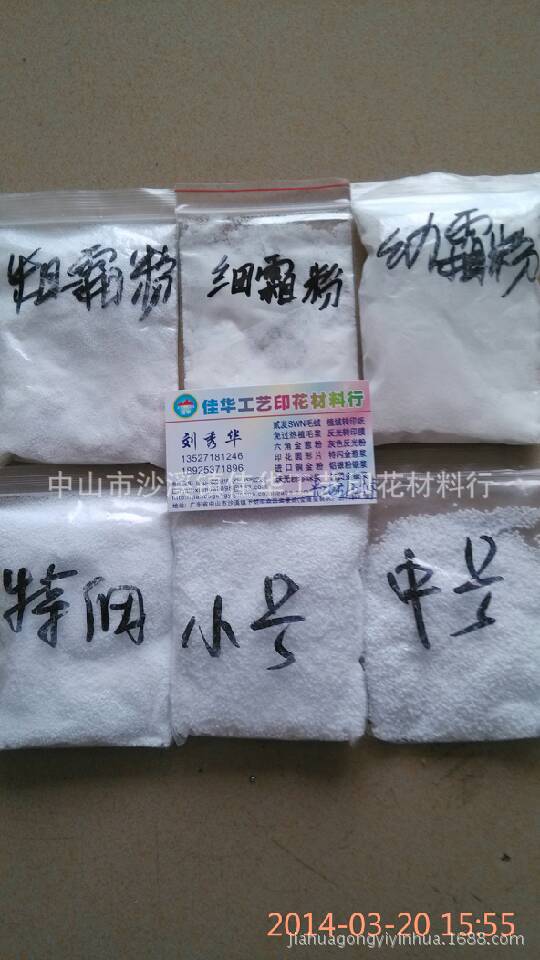 粗霜粉
细霜粉
幼霜粉
佳华工艺印花材料行
刘秀华
13527181246
18925371896
贰发SWN毛绒 植绒转印纸
免过热植毛浆 反光转印膜
六角金葱粉 灰色反光粉
印花圆形片 特闪金葱浆
进口铜金粉 铝银粉银浆
中山市沙溪镇佳华工艺印花材料行
特细
小号
中号
2014-03-20 15:55
jiahuagongyiyinhua.1688.com